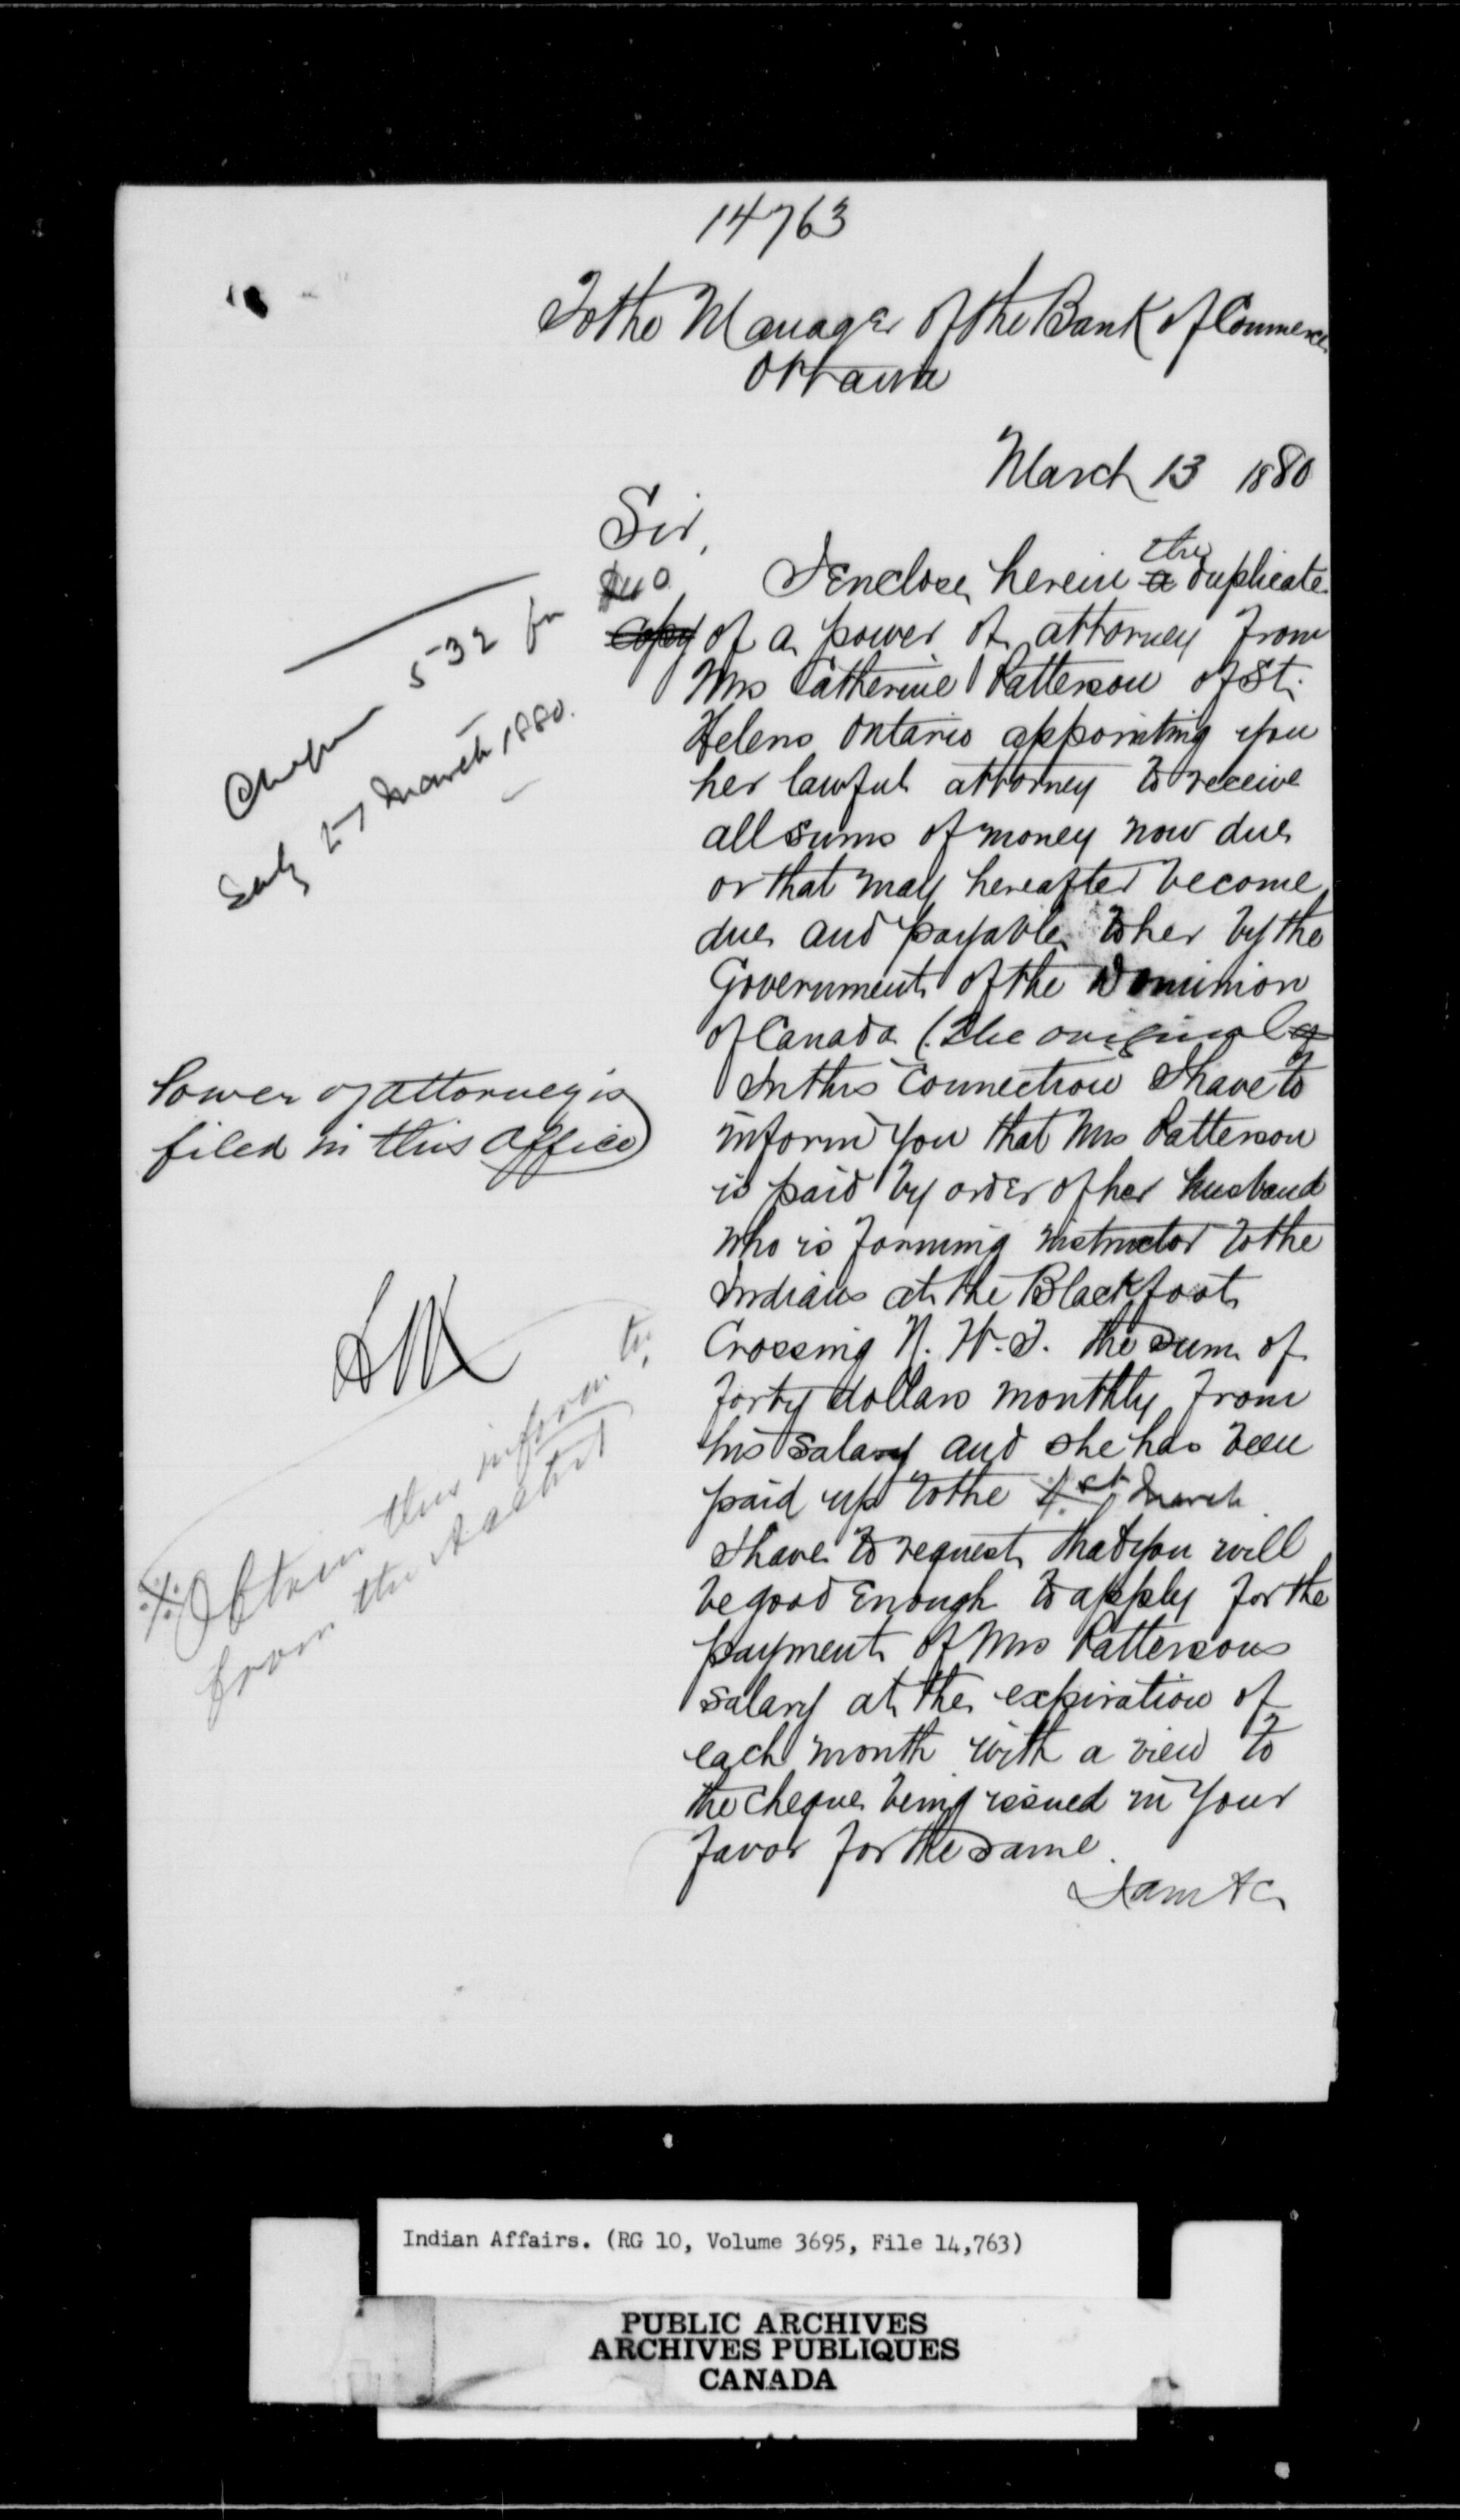 14763
To the Manager of the Bank of Commerce
Ottawa
March 13 1880
Sir,
I Enclose herein the a duplicate
copy of a power of attorney from
Mrs Catherine Patterson of St.
Helens Ontario appointing you
her lawful attorney to receive
all sums of money now due
or that may hereafter become
due and payable to her by the
Government of the Dominion
of Canada (The original of
Power of attorney is
filed in this office)
In this Connection I have to
inform you that Mrs Patterson
is paid by order of her husband
who is farming instructor to the
Indians at the Blackfoot
Crossing N. W. T. the sum of
forty dollars monthly from
his salary and she has been
paid up to the 1st March
I have to request that you will
be good Enough to apply for the
payment of Mrs Pattersons
salary at the expiration of
each month with a view to
the cheque being issued in your
favor for the same.
I am &c
Cheque 532 for
$40
27 March 1880.
Obtain this inform tn.
from the Acctnt
Indian Affairs. (RG 10, Volume 3695, File 14,763)
PUBLIC ARCHIVES
ARCHIVES PUBLIQUES
CANADA